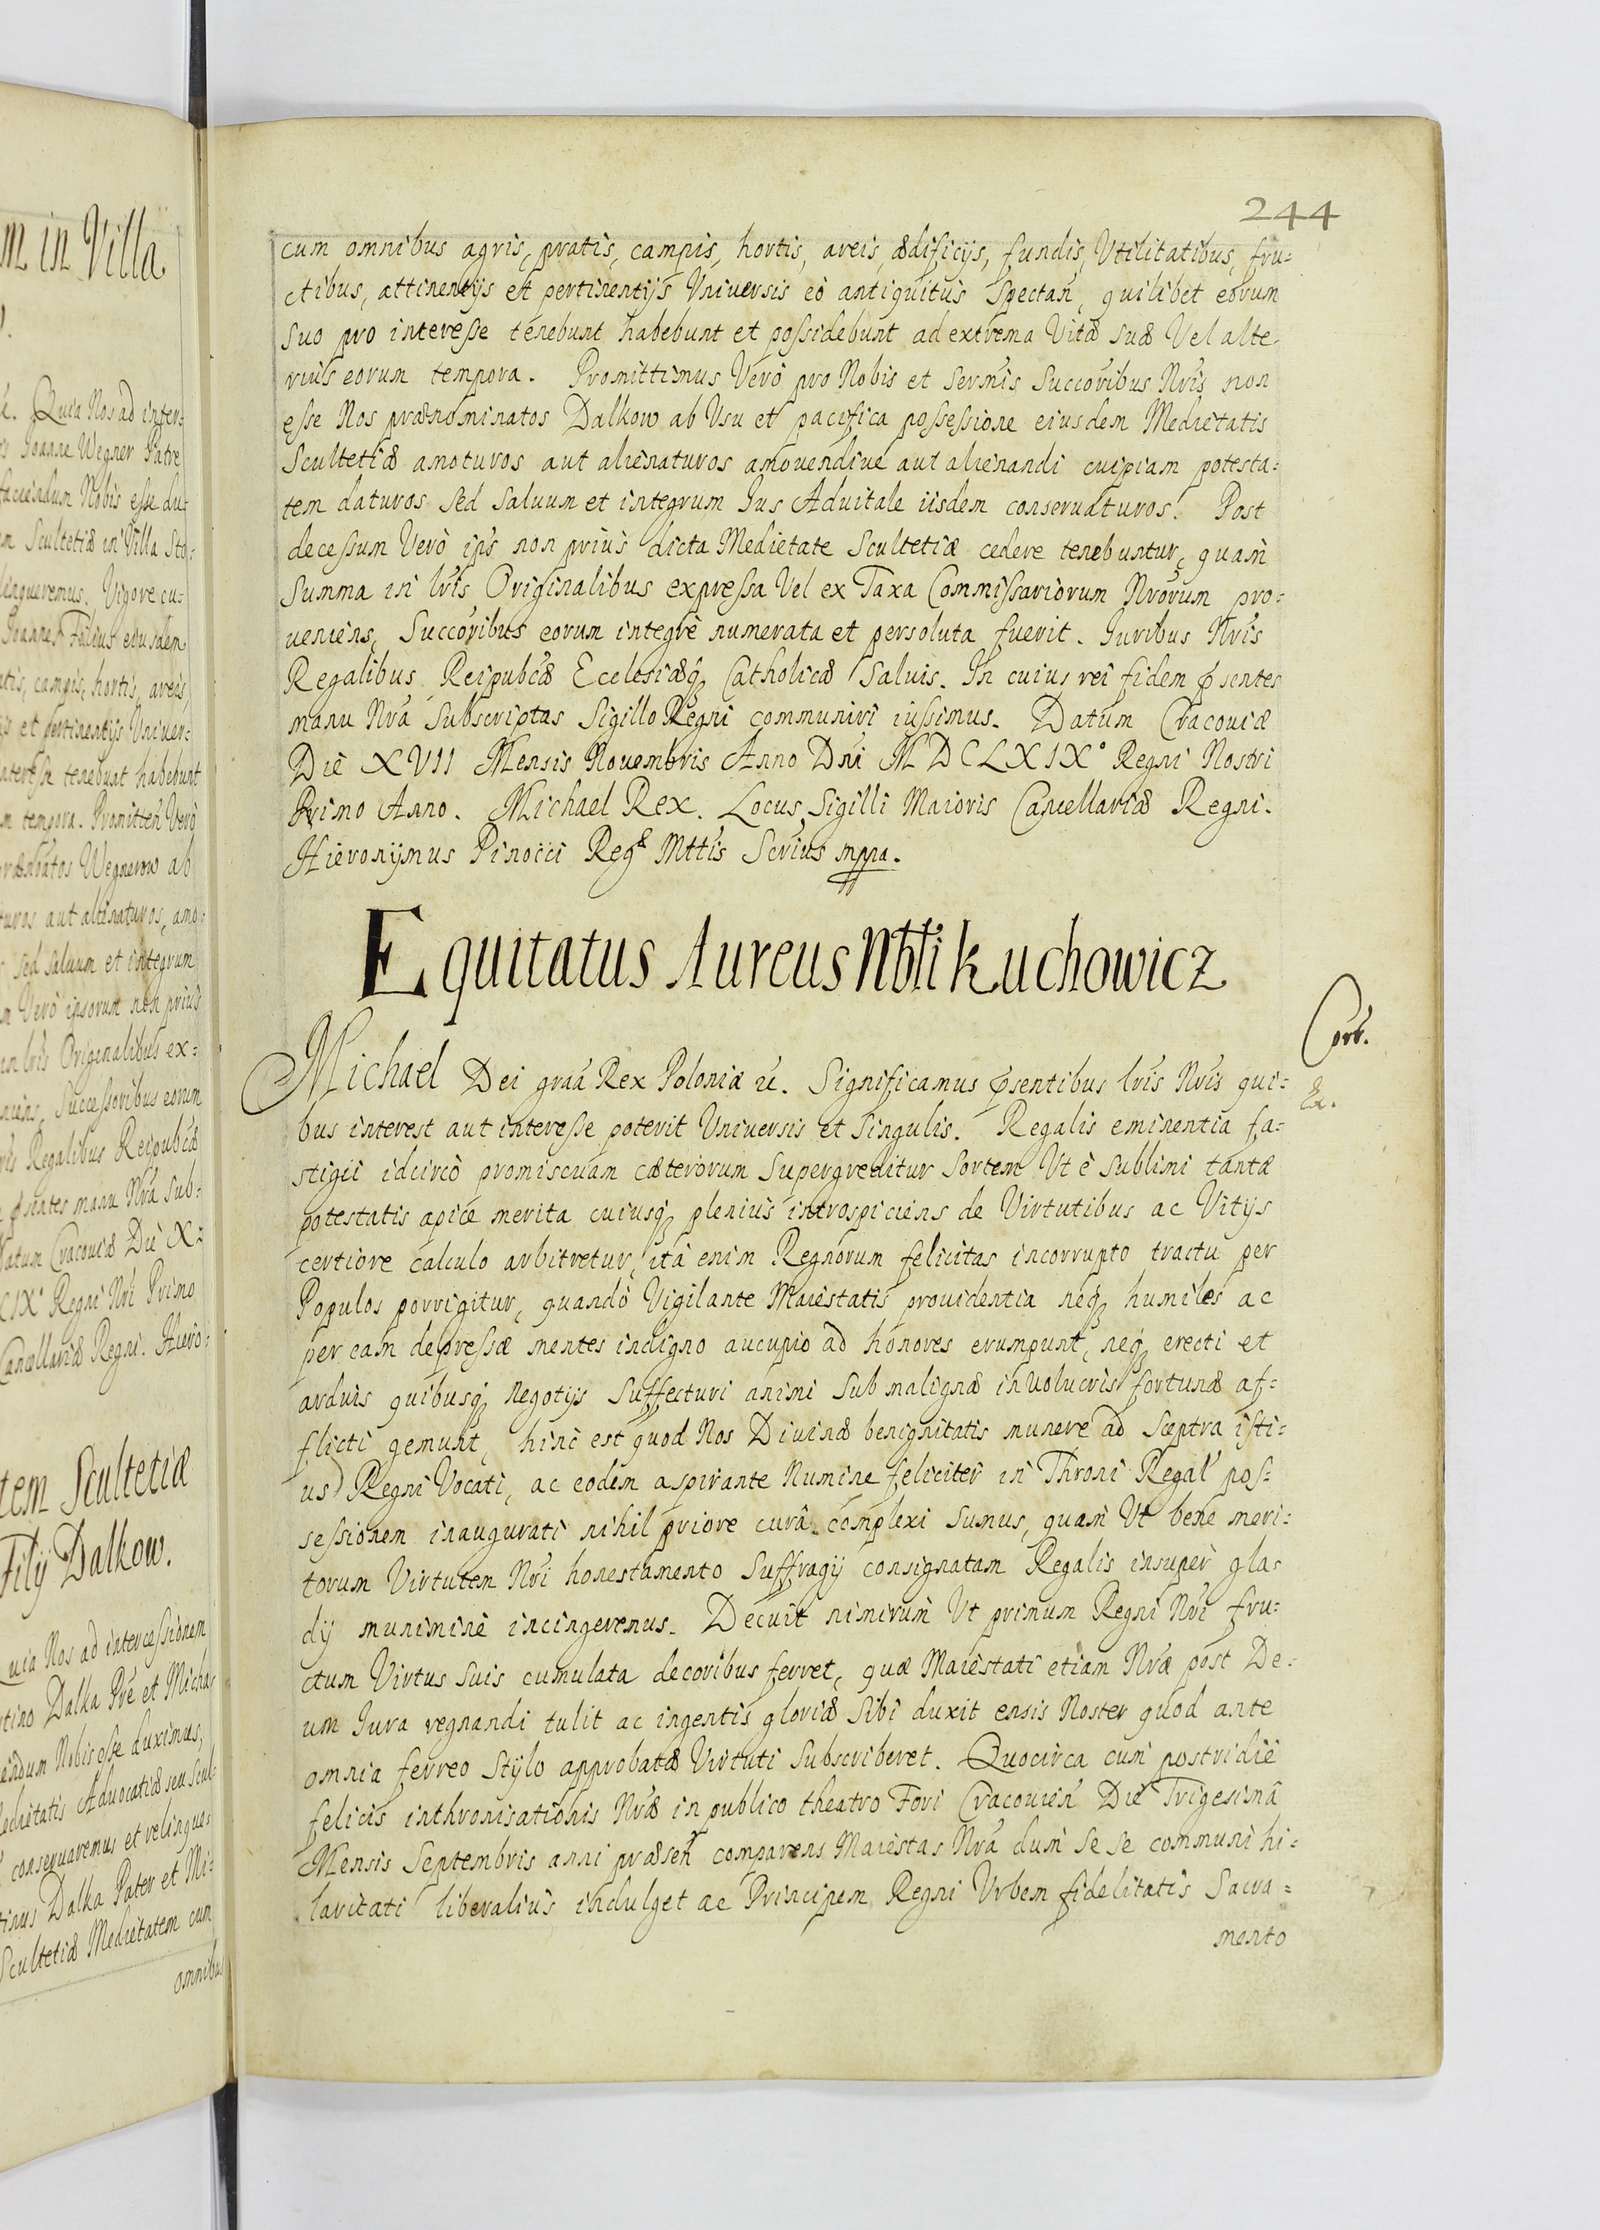 244
cum omnibus agris, pratis, campis, hortis, areis, ædificijs, fundis, Vtilitatibus, fru-
ctibus, attinentijs et pertinentijs Vniuersis eò antiquitus Spectan, quilibet eorum
suo pro interesse tenebunt habebunt et possidebunt ad extrema Vitæ suæ Vel alte-
rius eorum tempora. Promittimus Verò pro Nobis et Sermis Succoribus Nris non
esse Nos prænominatos Dalkow ab Vsu et pacifica possessione eiusdem Medietatis
Scultetiæ amoturos aut alienaturos amouendiue aut alienandi cuipiam potesta-
tem daturos sed Saluum et integrum Ius Aduitale iisdem conseruaturos. Post
decessum Verò ips non prius dicta Medietate Scultetiæ cedere tenebuntur, quam
Summa in lris Originalibus expressa Vel ex Taxa Commissariorum Nrorum pro-
ueniens, Succoribus eorum integrè numerata et persoluta fuerit. Iuribus Nris
Regalibus Reipubcæ Ecclesiæq Catholicæ Saluis. In cuius rei fidem psentes
manu Nra Subscriptas Sigillo Regni communiri iussimus. Datum Cracouiæ
Die XVII Mensis Nouembris Anno Dni MDCLXIX° Regni Nostri
Primo Anno. Michael Rex. Locus Sigilli Maioris Cancellariæ Regni.
Hieronijmus Pinocci Regæ Mttis Scrius mppa.
Equitatus Aureus Nbli Kuchowicz
Michael Dei graâ Rex Poloniæ &c. Significamus psentibus lris Nris qui-
bus interest aut interesse poterit Vniuersis et Singulis. Regalis eminentia fa-
stigii idcircò promiscuam cæterorum Supergreditur Sortem Vt è sublimi tantæ
potestatis apice merita cuiusq plenius introspiciens de Virtutibus ac Vitijs
certiore calculo arbitretur, ita enim Regnorum felicitas incorrupto tractu per
Populos porrigitur, quandò Vigilante Maiestatis prouidentia neq humiles ac
per eam depressæ mentes indigno aucupio ad honores erumpunt, neq erecti et
arduis quibusq negotijs Suffecturi animi Sub malignæ inuolucris fortunæ af-
flicti gemunt, hinc est quod Nos Diuinæ benignitatis munere ad Sceptra isti-
us Regni Vocati, ac eodem aspirante Numine feliciter in Throni Regal pos-
sessionem inaugurati nihil priore curâ complexi Sumus, quam Vt bene meri-
torum Virtutem Nri honestamento Suffragij consignatam Regalis insuper gla-
dij munimine incingeremus. Decuit nimirum Vt primum Regni Nri fru-
ctum Virtus suis cumulata decoribus ferret, quæ Maiestati etiam Nræ post De-
um Iura regnandi tulit ac ingentis gloriæ Sibi duxit ensis Noster quod ante
omnia ferreo Stylo approbatæ Virtuti Subscriberet. Quocirca cum postridie
felicis inthronisationis Nræ in publico theatro Fori Cracouien Die Trigesimâ
Mensis Septembris anni præsen comparens Maiestas Nra dum se se communi hi-
laritati liberalius indulget ac Principem Regni Vrbem fidelitatis Sacra-
mento